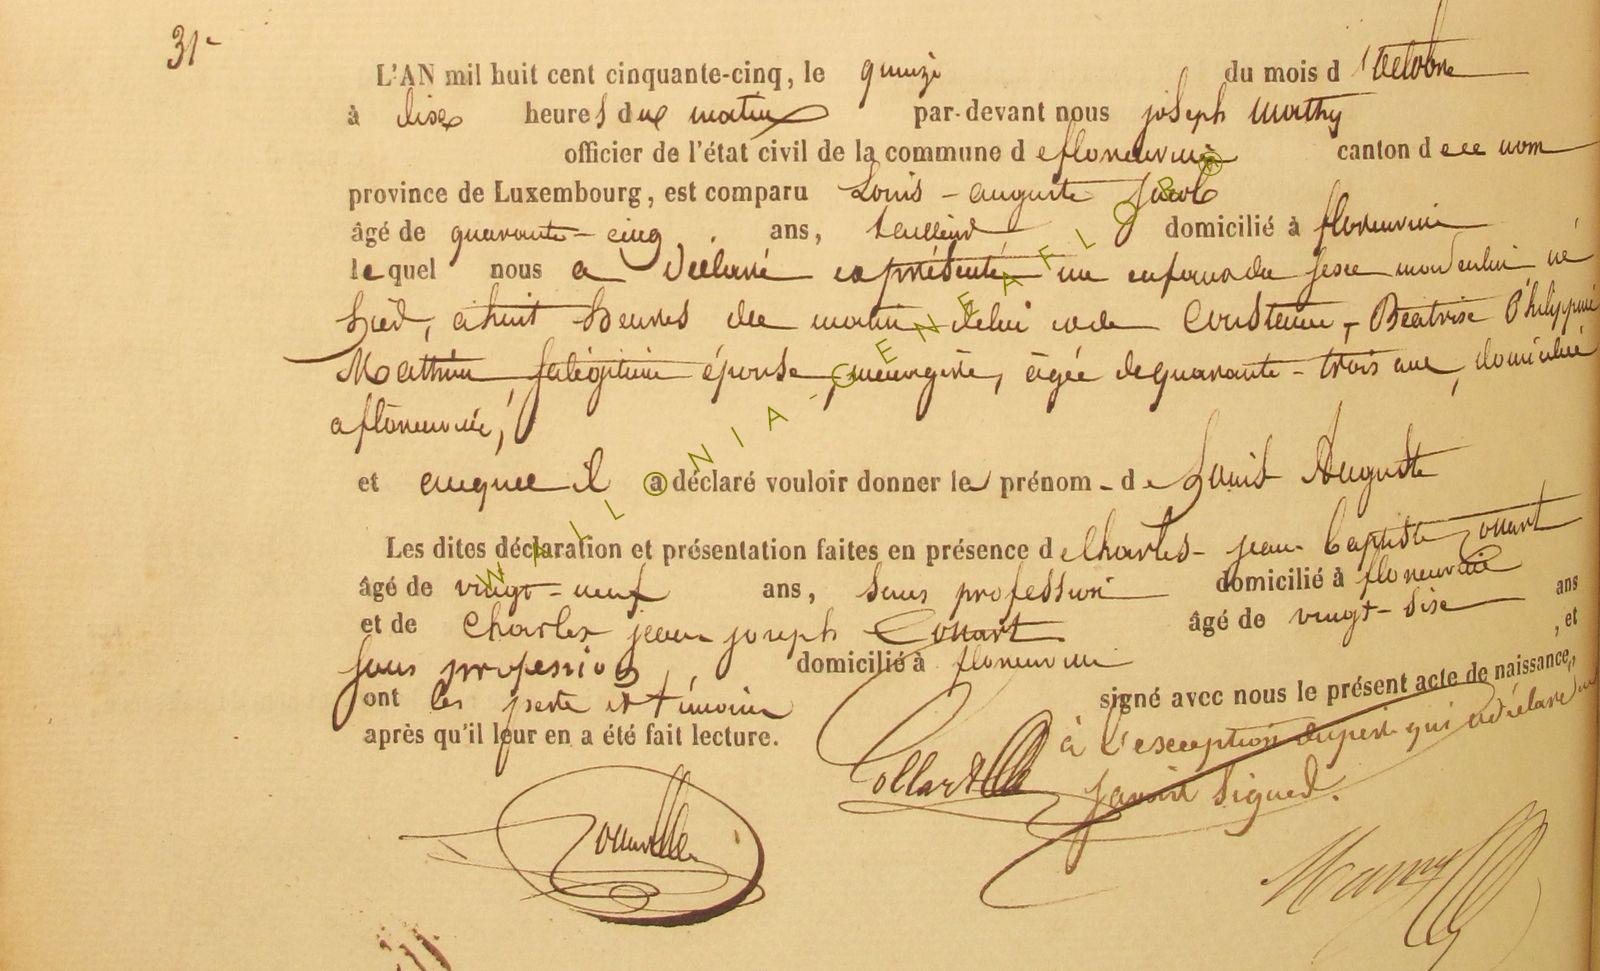 31
L'AN mil huit cent cinquante-cinq, le quinze du mois d'octobre
à dix heures du matin par-devant nous joseph Mathy
officier de l'état civil de la commune de florenville canton de ce nom
province de Luxembourg, est comparu Louis-auguste Jacob
âgé de quarante-cinq ans, domicilié à florenville
lequel nous a déclaré et présenté un enfant du sexe masculin né
hier, à huit heures du matin de lui et de Béatrise Philippine
Mathieu, sa légitime épouse, ménagère, âgée de quarante-trois ans, domiciliée
a florenville,
et auquel il a déclaré vouloir donner le prénom de Louis Auguste
Les dites déclaration et présentation faites en présence de Charles-jean Baptiste
âgé de vingt-neuf ans, sans profession domicilié à florenville
et de Charles jean joseph âgé de vingt-six ans
sans profession domicilié à florenville, et
ont les père et témoins signé avec nous le présent acte de naissance,
après qu'il leur en a été fait lecture.
à l'exception du père qui a déclaré ne
savoir signer.
WALLONIA-GENEAFLOR®